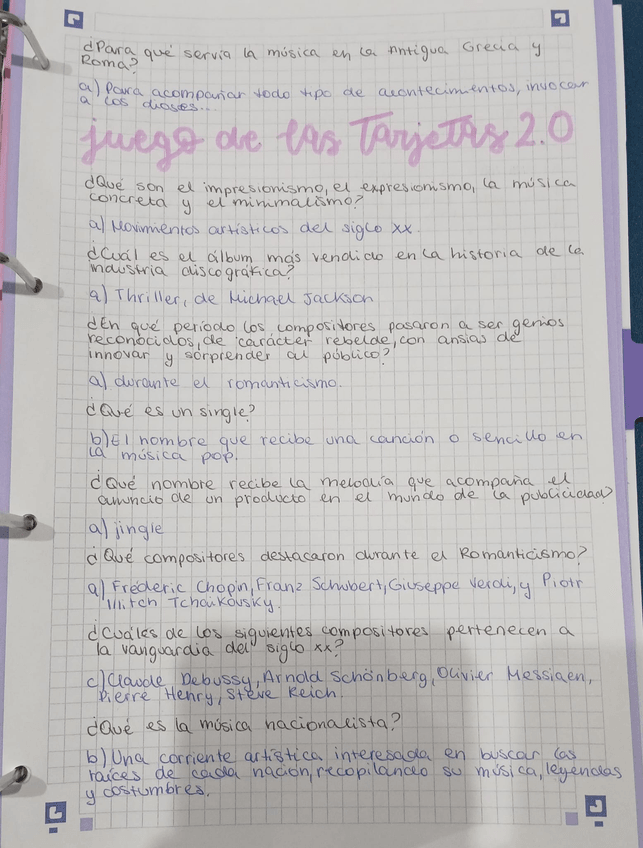 ¿Para qué servía la música en la Antigua Grecia y
Roma?
a) Para acompañar todo tipo de acontecimientos, invocar
a los dioses...
juego de las Tarjetas 2.0
¿Qué son el impresionismo, el expresionismo, la música
concreta y el minimalismo?
a) Movimientos artísticos del siglo XX.
¿Cuál es el álbum más vendido en la historia de la
industria discográfica?
a) Thriller, de Michael Jackson
¿En qué período los compositores pasaron a ser genios
reconocidos, de carácter rebelde, con ansias de
innovar y sorprender al público?
a) durante el romanticismo.
¿Qué es un single?
b) El nombre que recibe una canción o sencillo en
la música pop.
¿Qué nombre recibe la melodía que acompaña el
anuncio de un producto en el mundo de la publicidad?
a) jingle
¿Qué compositores destacaron durante el Romanticismo?
a) Fréderic Chopin, Franz Schubert, Giuseppe Verdi, y Piotr
Ilitch Tchaikovsky.
¿Cuáles de los siguientes compositores pertenecen a
la vanguardia del siglo XX?
c) Claude Debussy, Arnold Schönberg, Olivier Messiaen,
Pierre Henry, Steve Reich.
¿Qué es la música nacionalista?
b) Una corriente artística interesada en buscar las
raíces de cada nación, recopilando su música, leyendas
y costumbres.